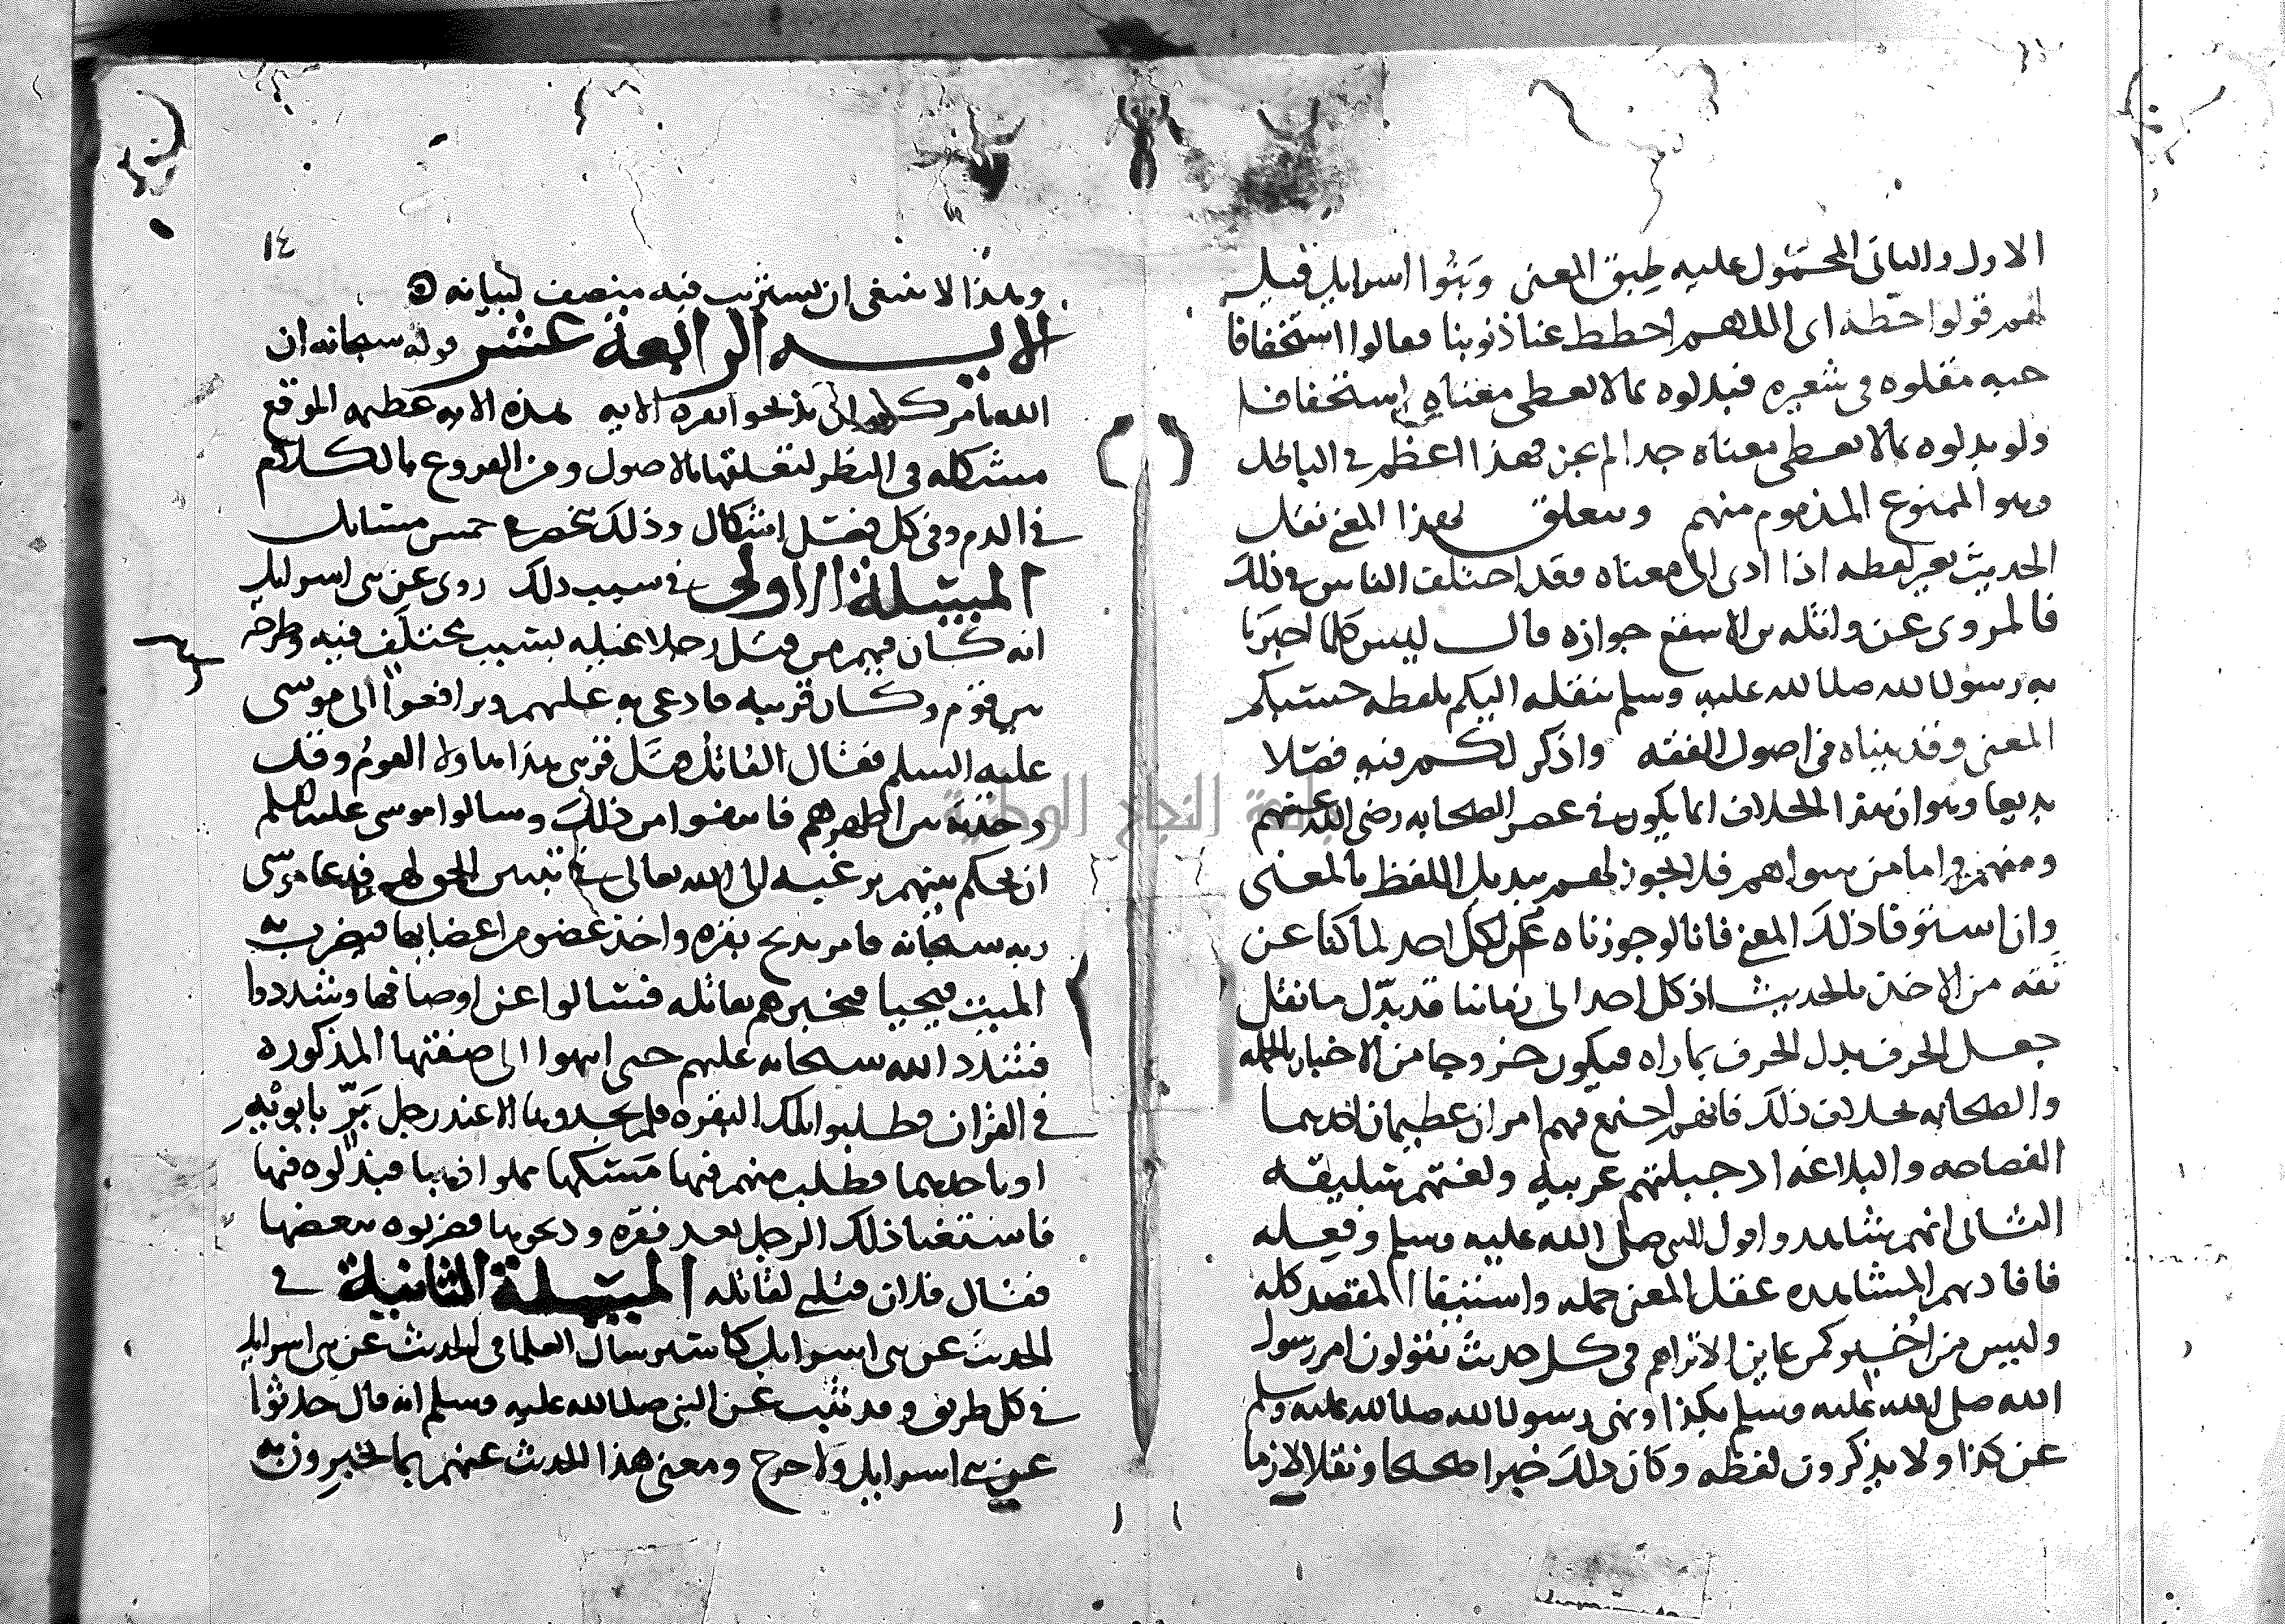 الاول والثاني المحمول عليه طبق المعنى وبنوا اسرايل قيل
لهم قولوا حطة اى اللهم احطط عنا ذنوبنا فقالوا استخفافا
حبه مقلوه في شعيره فبدلوه بما لا يعطى معناه استخفافا
ولو بدلوه بما لا يعطى معناه جدا لم يجز فهذا اعظم في الباطل
وهو الممنوع المذموم منهم ويتعلق بهذا المعنى نقل
الحديث بغير لفظه اذا ادى الى معناه فقد اختلف الناس في ذلك
فالمروى عن واثله بن الاسقع جوازه قال ليس كلما اخبرنا
به رسول الله صلى الله عليه وسلم ننقله اليكم بلفظه حسبكم
المعنى وقد بيناه في اصول الفقه واذكر لكم فيه فصلا
بديعا وهو ان هذا الخلاف انما يكون في عصر الصحابه رضي الله عنهم
ومنهم واما من سواهم فلا يجوز لهم تبديل اللفظ بالمعنى
وان استوفا ذلك المعنى فانا لو جوزناه لكل احد لما كنا على
ثقه من الاخذ بالحديث اذ كل احد الى زماننا قد بدل ما نقل
جعل الحرف بدل الحرف بما راه فيكون خروجا من الاخبار بالجمله
والصحابه بخلاف ذلك فانهم اجتمع فيهم امران عظيمان احدهما
الفصاحه والبلاغه اذ جبلتهم عربيه ولغتهم سليقه
الثاني انهم شاهدوا قول النبى صلى الله عليه وسلم وفعله
فافادتهم المشاهده عقل المعنى جمله واستيفا المقصد كله
وليس من اخبر كمن عاين الا تراهم في كل حديث يقولون امر رسول
الله صلى الله عليه وسلم بكذا ونهى رسول الله صلى الله عليه وسلم
عن كذا ولا يذكرون لفظه وكان ذلك خبرا صحيحا ونقلا لازما
١٤
وهذا لا ينبغى ان يستريب فيه منصف لبيانه
الايه الرابعة عشر قوله سبحانه ان
الله يامركم ان تذبحوا بقره الايه هذه الايه عظيمه الموقع
مشكله في النظر لتعلقها بالاصول ومن الفروع بالكلام
في الدم وفي كل فصل اشكال وذلك ينحصر في خمس مسايل
المسئلة الاولى في سبب ذلك روى عن بنى اسرايل
انه كان فيهم من قتل رجلا غيله بسبب مختلف فيه وطرحه
بين قوم وكان قريبه فادعى به عليهم وترافعوا الى موسى
عليه السلم فقال القاتل قتل قريبى هذا هاولا القوم وقد
وجدته بين اظهرهم فانتفوا من ذلك وسالوا موسى عليه السلم
ان يحكم بينهم برغبه الى الله تعالى في تبيين الحق لهم فدعا موسى
ربه سبحانه فامر بذبح بقره واخذ عضو من اعضايها فيضرب به
الميت فيحيا فيخبرهم بقاتله فسالوا عن اوصافها وشددوا
فشدد الله سبحانه عليهم حتى انتهوا الى صفتها المذكوره
في القران فطلبوا تلك البقره فلم يجدوها الا عند رجل بر بابويه
او باحدهما فطلب منهم فيها مسكها مملوا ذهبا فبذلوه فيها
فاستغنا ذلك الرجل بعد فقره وذبحوها فضربوه ببعضها
فقال فلان قتلنى لقاتله المسئلة الثانية في
الحديث عن بنى اسرايل كثر استرسال العلما في الحديث عن بنى اسرايل
في كل طريق وقد ثبت عن النبى صلى الله عليه وسلم انه قال حدثوا
عن بنى اسرايل ولا حرج ومعنى هذا الحديث عنهم بما يخبرون به
جامعة النجاح الوطنية